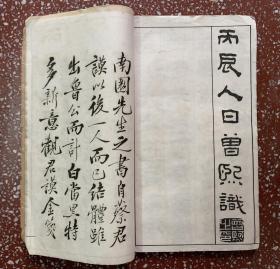 丙辰人日曾熙識
南園先生之書自蔡君
謨以後一人而已結體雖
出魯公而計白當黑特
多新意觀君謨金箋